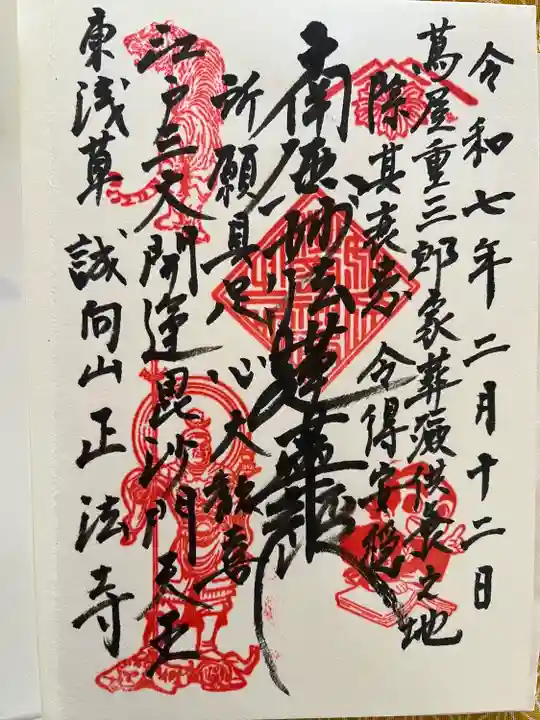 令和七年二月十二日
蔦屋重三郎家葬瘞供養之地
除其衰患 令得安穏
南無妙法蓮華経
所願具足 心大歓喜
江戸三大開運毘沙門天王
東浅草 誠向山正法寺